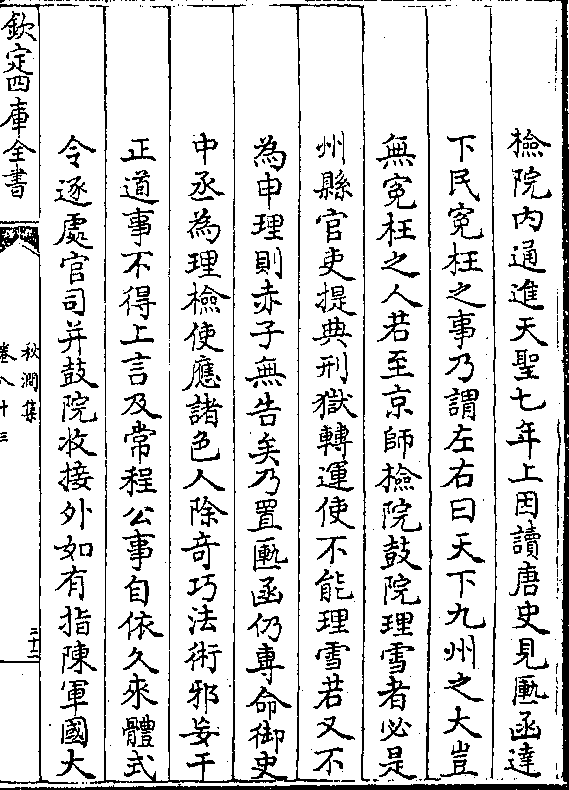 檢院内通進天聖七年上因讀唐史見匭函達
下民寃枉之事乃謂左右曰天下九州之大豈
無寃枉之人若至京師檢院鼓院理雪者必是
州縣官吏提典刑獄轉運使不能理雪若又不
為申理則赤子無告矣乃置匭函仍専命御史
中丞為理檢使應諸色人除竒巧法術邪妄干
正道事不得上言及常程公事自依久來體式
令逐處官司并鼓院收接外如有指陳軍國大
欽定四庫全書
秋澗集
卷八十三
三十二